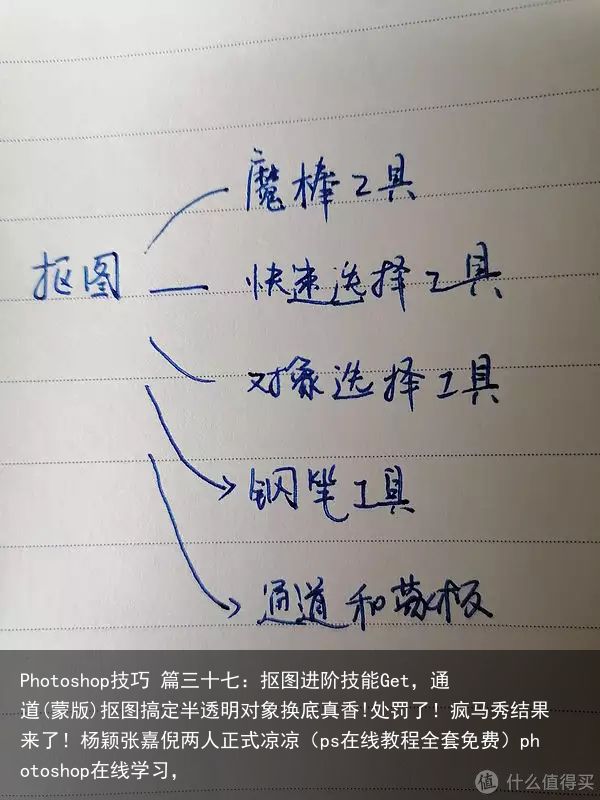 魔棒工具
抠图
快速选择工具
对象选择工具
钢笔工具
通道和蒙板
Photoshop技巧 篇三十七：抠图进阶技能Get，通
道(蒙版)抠图搞定半透明对象换底真香!处罚了！疯马秀结果
来了！杨颖张嘉倪两人正式凉凉（ps在线教程全套免费）ph
otoshop在线学习，
值 什么值得买